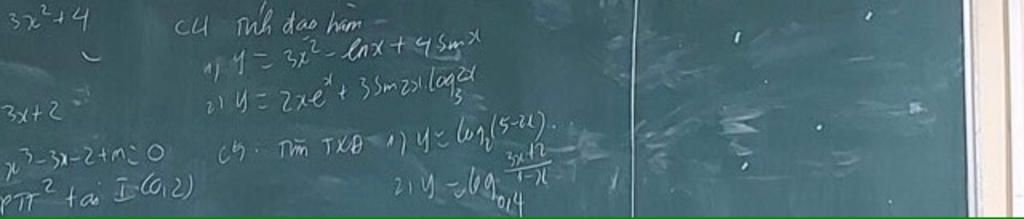 3x²+4
3x+2
x³-3x-2+m=0
PTT² tại I(0,2)
C4 Tính đạo hàm
1) y = 3x² - lnx + 4sinx
2) y = 2x.eˣ + 3sin2x.log₃2x
C5. Tìm TXĐ 1) y = log₂(5-2x)
2) y = log₀,₄ (3x+2)/(1-x)